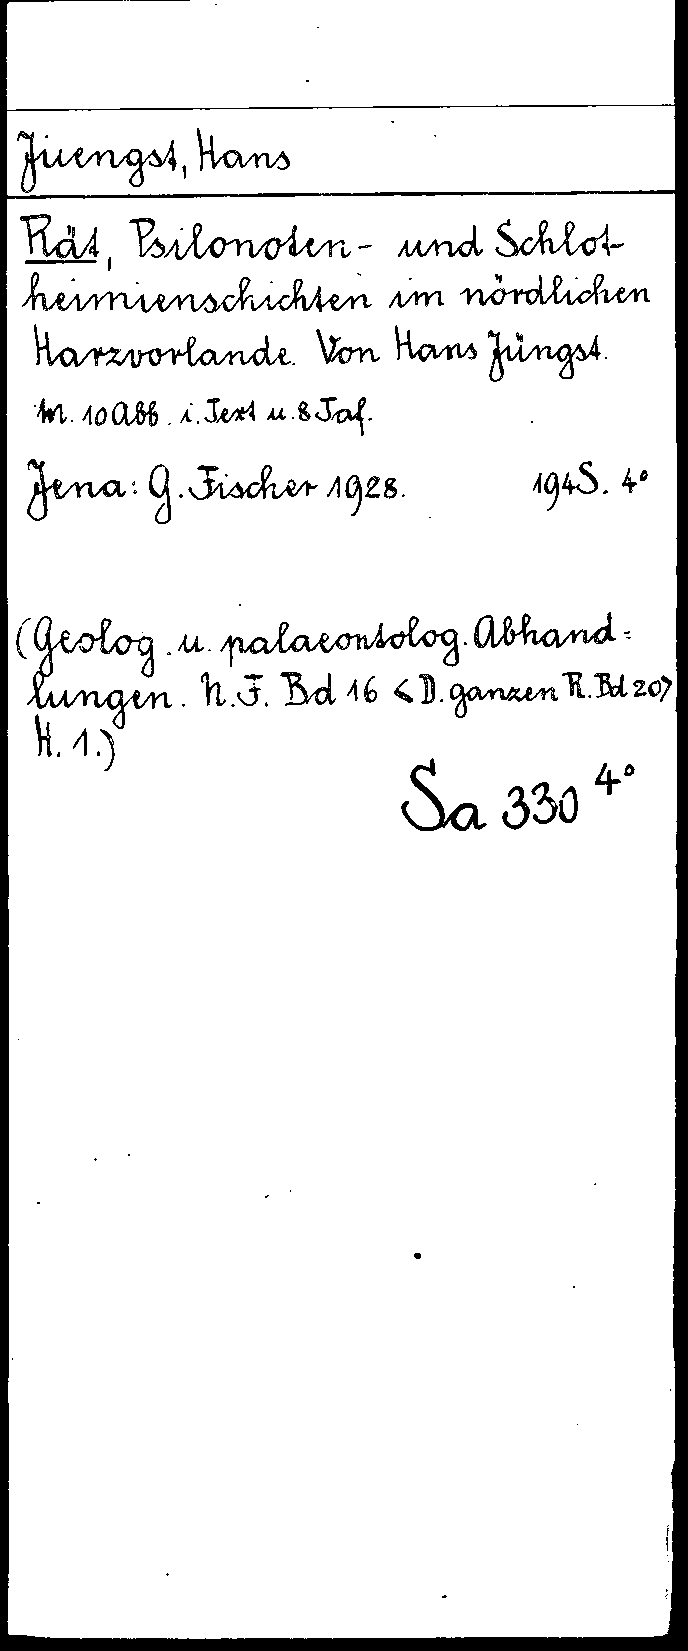 Juengst, Hans
Rät, Psilonoten- und Schlot-
heimienschichten im nördlichen
Harzvorlande. Von Hans Jüngst.
M. 10 Abb. i. Text u. 8 Taf.
Jena: G. Fischer 1928. 194 S. 4°
(Geolog. u. palaeontolog. Abhand-
lungen. N. F. Bd 16 <D. ganzen R. Bd 20>
H. 1.)
Sa 330 4°